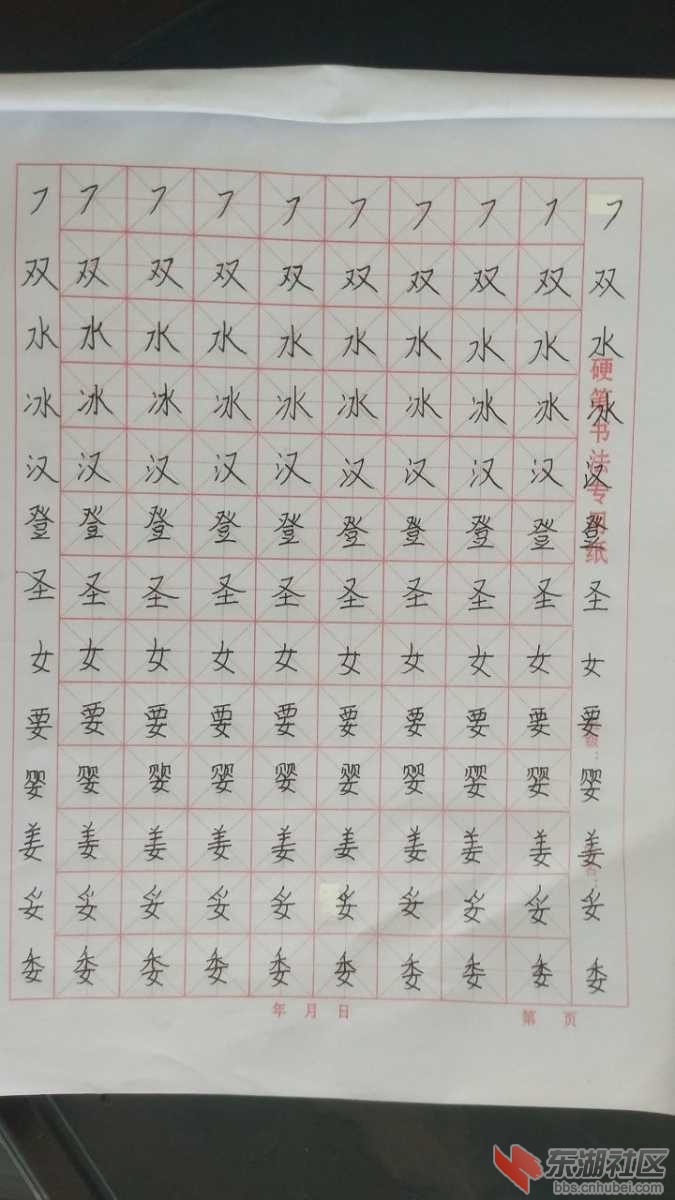 ㇇ ㇇ ㇇ ㇇ ㇇ ㇇ ㇇ ㇇ ㇇ ㇇
双 双 双 双 双 双 双 双 双 双
水 水 水 水 水 水 水 水 水 水
冰 冰 冰 冰 冰 冰 冰 冰 冰 冰
汉 汉 汉 汉 汉 汉 汉 汉 汉 汉
登 登 登 登 登 登 登 登 登 登
圣 圣 圣 圣 圣 圣 圣 圣 圣 圣
女 女 女 女 女 女 女 女 女 女
要 要 要 要 要 要 要 要 要 要
婴 婴 婴 婴 婴 婴 婴 婴 婴 婴
姜 姜 姜 姜 姜 姜 姜 姜 姜 姜
妥 妥 妥 妥 妥 妥 妥 妥 妥 妥
委 委 委 委 委 委 委 委 委 委
硬笔书法专用纸
年 月 日
第 页
东湖社区
bbs.cnhubei.com